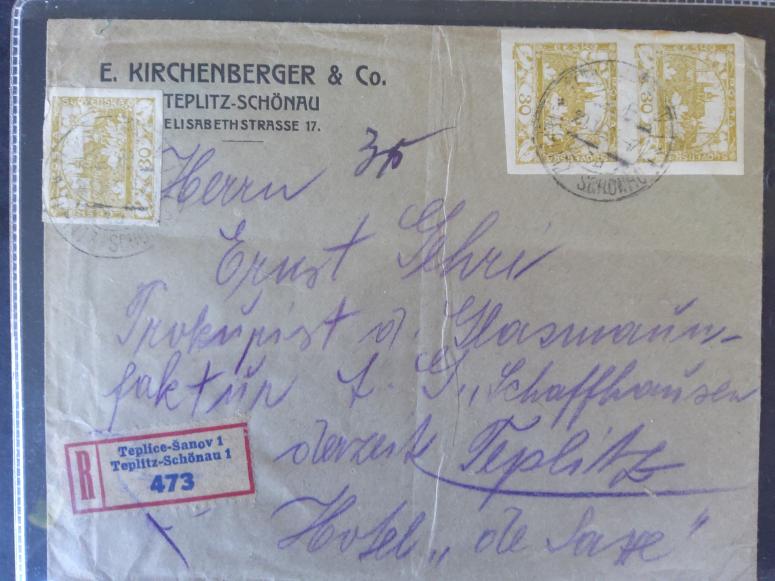 E. KIRCHENBERGER & Co.
TEPLITZ-SCHÖNAU
ELISABETHSTRASSE 17.
30
30
30
Herrn
Ernst Gehri
Prokurist d. Glasmanu-
faktur A. G. „Schaffhausen
derzeit Teplitz
Hotel „de Saxe"
R
Teplice-Šanov 1
Teplitz-Schönau 1
473